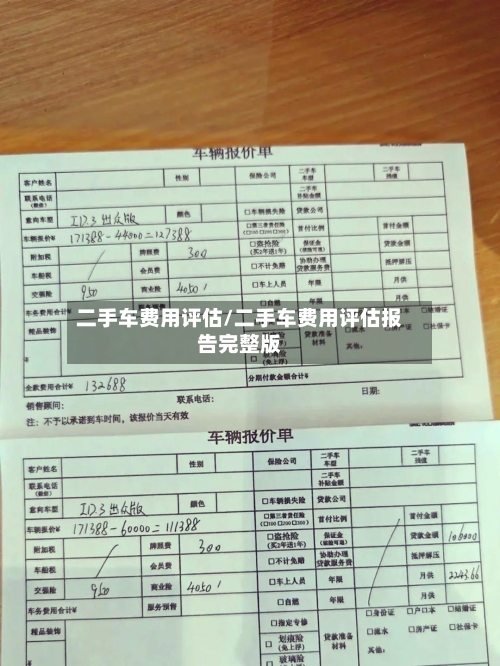 车辆报价单
客户姓名 性别 保险公司 二手车车型 二手车残值
联系电话(微信) 二手车补贴金额
意向车型 ID.3 出众版 颜色 □车辆损失险 贷款公司
车辆报价¥ 171388-44000=127388 □第三者责任险 (□100 □200 □300) 首付比例 首付金额
附加税 牌照费 300 □盗抢险(买2年送1年) 保证金 贷款金额
车船税 会员费 □不计免赔 协助办理贷款服务费 抵押解压
交强险 950 商业险 4050 □车上人员 年限 月供
□自燃 年限 月供
精品装饰 贷款准备材料 □户口本 □结婚证
□房产证 □社保卡
其他:
二手车费用评估/二手车费用评估报
告完整版
(免上浮)
全款费用合计¥ 132688 分期付款金额合计¥
销售顾问: 联系电话: 日期:
注: 不予以承诺到车时间,该报价当天有效
车辆报价单
客户姓名 性别 保险公司 二手车车型 二手车残值
联系电话(微信) 二手车补贴金额
意向车型 ID.3 出众版 颜色 □车辆损失险 贷款公司
车辆报价¥ 171388-60000=111388 □第三者责任险 (□100 □200 □300) 首付比例 首付金额
附加税 牌照费 300 □盗抢险(买2年送1年) 保证金 贷款金额 100000
车船税 会员费 □不计免赔 协助办理贷款服务费 抵押解压
交强险 950 商业险 4050 □车上人员 年限 月供 2243.66
车务费用合计¥ 服务预售 □自燃 年限 月供
精品装饰 □指定专修 贷款准备材料 □身份证 □户口本 □结婚证
□划痕险(免上浮) □流水 □房产证 □社保卡
□玻璃险 其他: